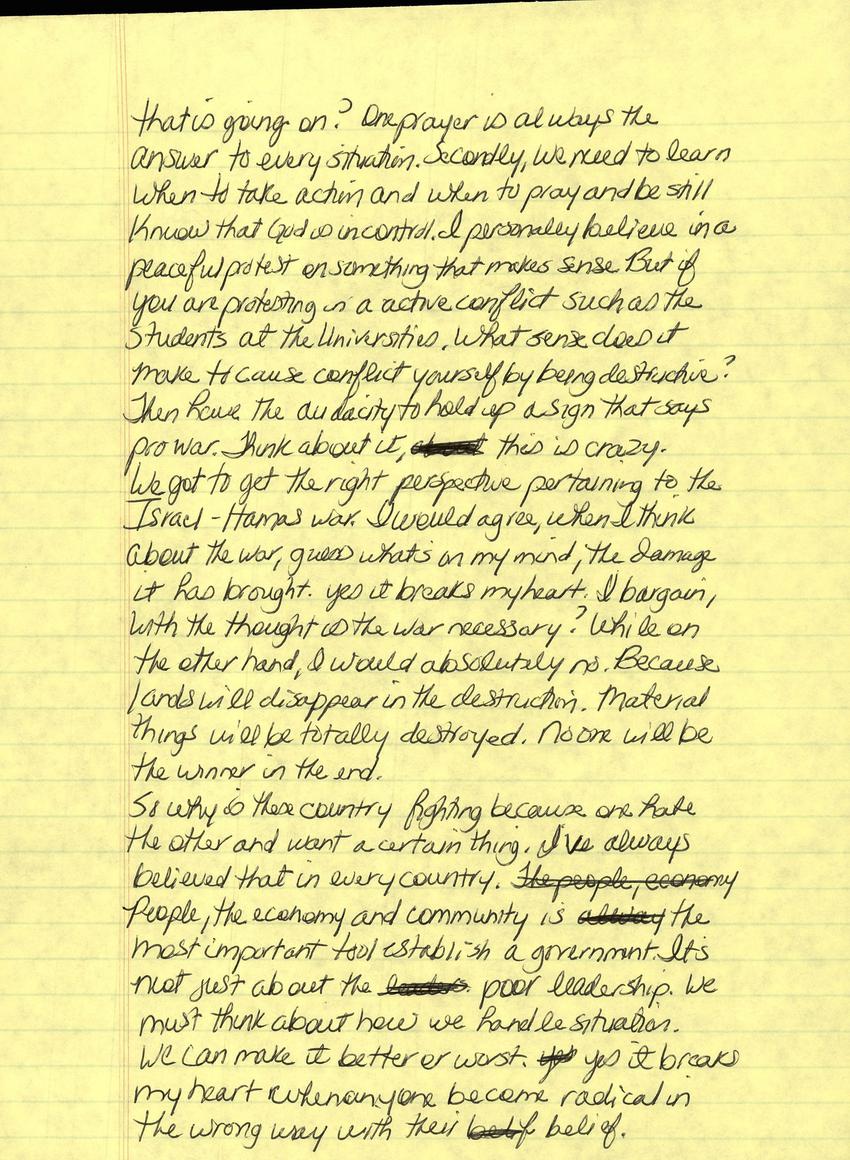 that is going on? One prayer is always the
answer to every situation. Secondly, we need to learn
when to take action and when to pray and be still
Know that God is in control. I personally believe in a
peaceful protest on something that makes sense But if
you are protesting in a active conflict such as the
Students at the Universities. What sense does it
make to cause conflict yourself by being destructive?
Then have the audacity to hold up a sign that says
pro war. Think about it, this is crazy.
We got to get the right perspective pertaining to the
Israel - Hamas war. I would agree, when I think
about the war, guess what's on my mind, the damage
it has brought. yes it breaks my heart. I bargain,
with the thought is the war necessary? While on
the other hand, I would absolutely no. Because
lands will disappear in the destruction. Material
things will be totally destroyed. No one will be
the winner in the end.
So why is these country fighting because one hate
the other and want a certain thing. I've always
believed that in every country. The people, economy
People, the economy and community is the
most important tool establish a government. It's
not just about the leaders poor leadership. We
must think about how we handle situation.
We can make it better or worst. yes yes it breaks
my heart when anyone become radical in
the wrong way with their belief.